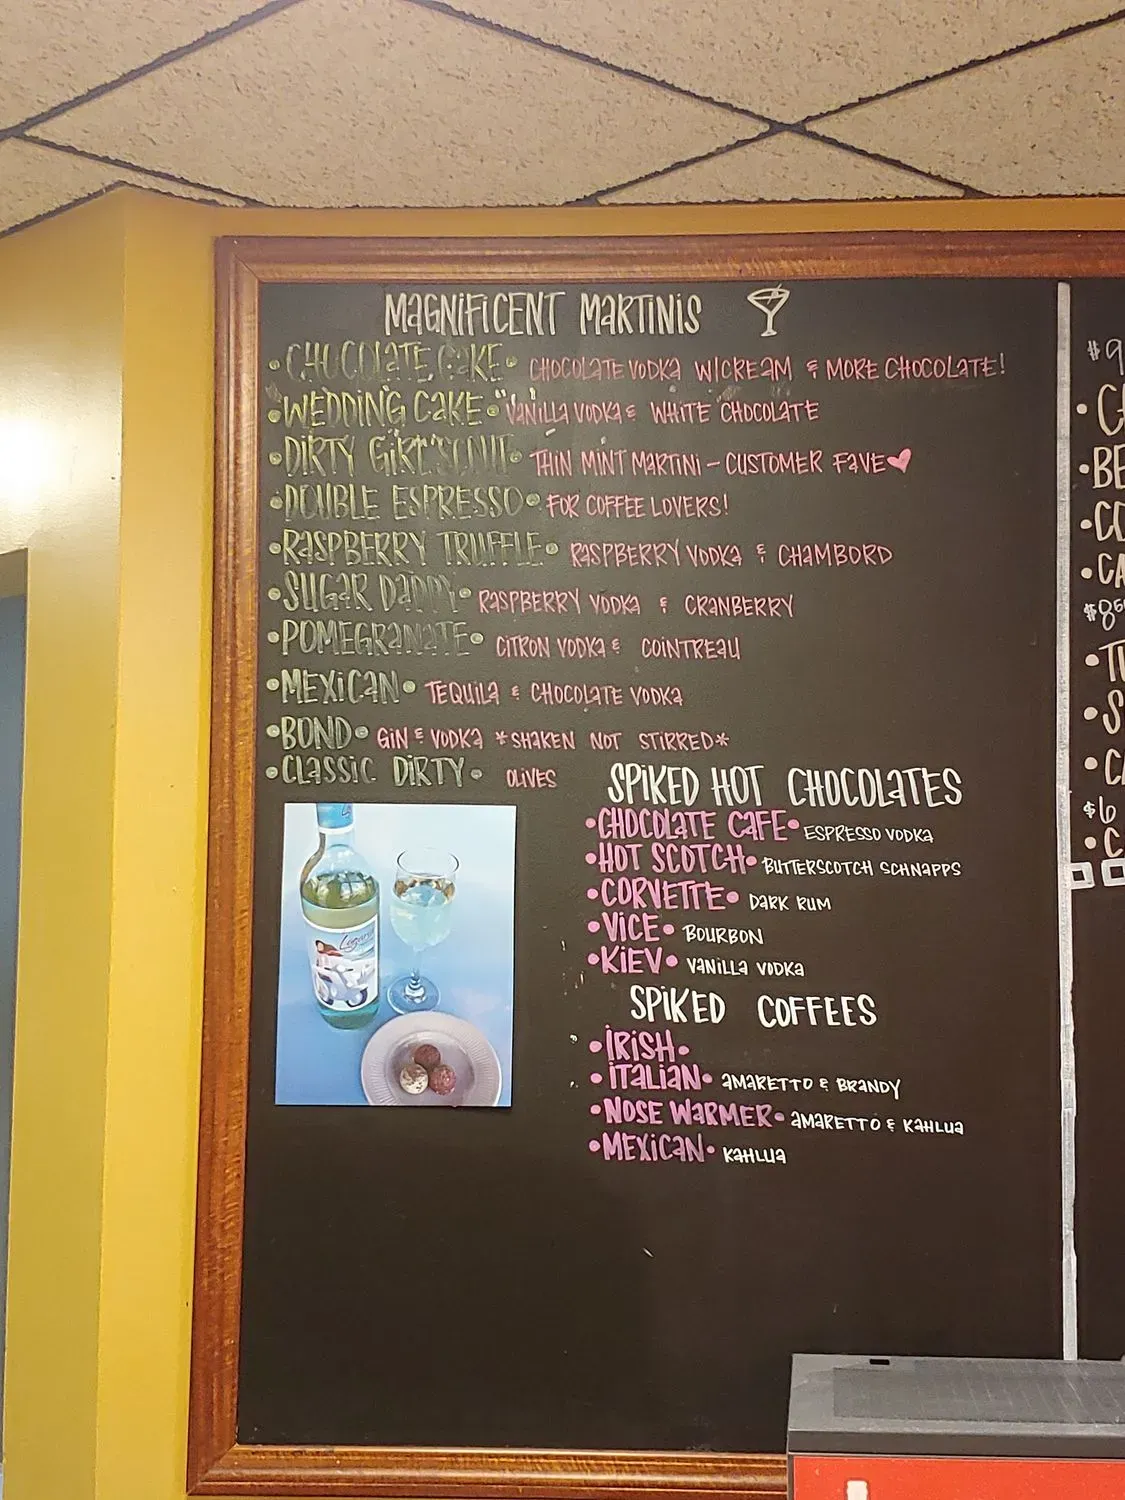 MAGNIFICENT MARTINIS
•CHOCOLATE CAKE• CHOCOLATE VODKA W/CREAM & MORE CHOCOLATE!
•WEDDING CAKE• VANILLA VODKA & WHITE CHOCOLATE
•DIRTY GIRL SCOUT• THIN MINT MARTINI - CUSTOMER FAVE♥
•DOUBLE ESPRESSO• FOR COFFEE LOVERS!
•RASPBERRY TRUFFLE• RASPBERRY VODKA & CHAMBORD
•SUGAR DADDY• RASPBERRY VODKA & CRANBERRY
•POMEGRANATE• CITRON VODKA & COINTREAU
•MEXICAN• TEQUILA & CHOCOLATE VODKA
•BOND• GIN & VODKA *SHAKEN NOT STIRRED*
•CLASSIC DIRTY• OLIVES
SPIKED HOT CHOCOLATES
•CHOCOLATE CAFE• ESPRESSO VODKA
•HOT SCOTCH• BUTTERSCOTCH SCHNAPPS
•CORVETTE• DARK RUM
•VICE• BOURBON
•KIEV• VANILLA VODKA
SPIKED COFFEES
•IRISH•
•ITALIAN• AMARETTO & BRANDY
•NOSE WARMER• AMARETTO & KAHLUA
•MEXICAN• KAHLUA